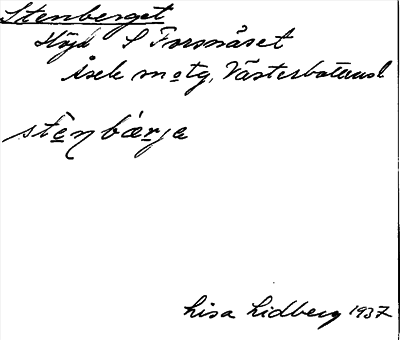 Stenberget
Höjd S Forsnäset
Åsele m otg, Västerbottensl
stènbárja
Lisa Lidberg 1937